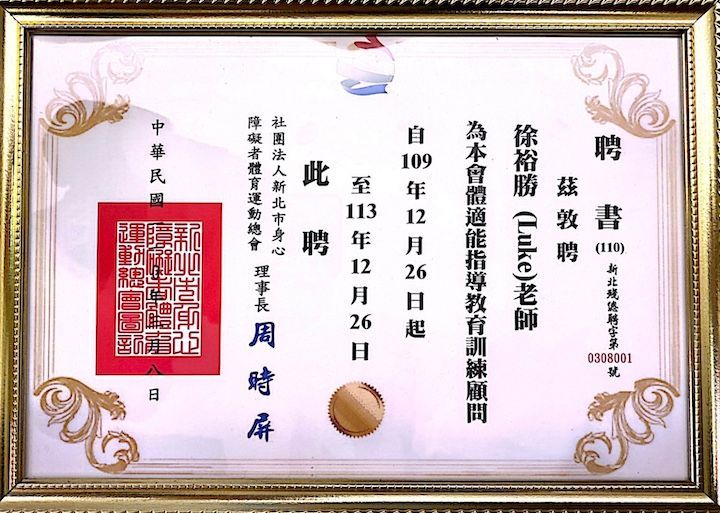 聘書
(110)新北殘總聘字第0308001號
茲敦聘
徐裕勝 (Luke)老師
為本會體適能指導教育訓練顧問
自109年12月26日起
至113年12月26日
此聘
社團法人新北市身心
障礙者體育運動總會 理事長 周時屏
中華民國 年 月八日